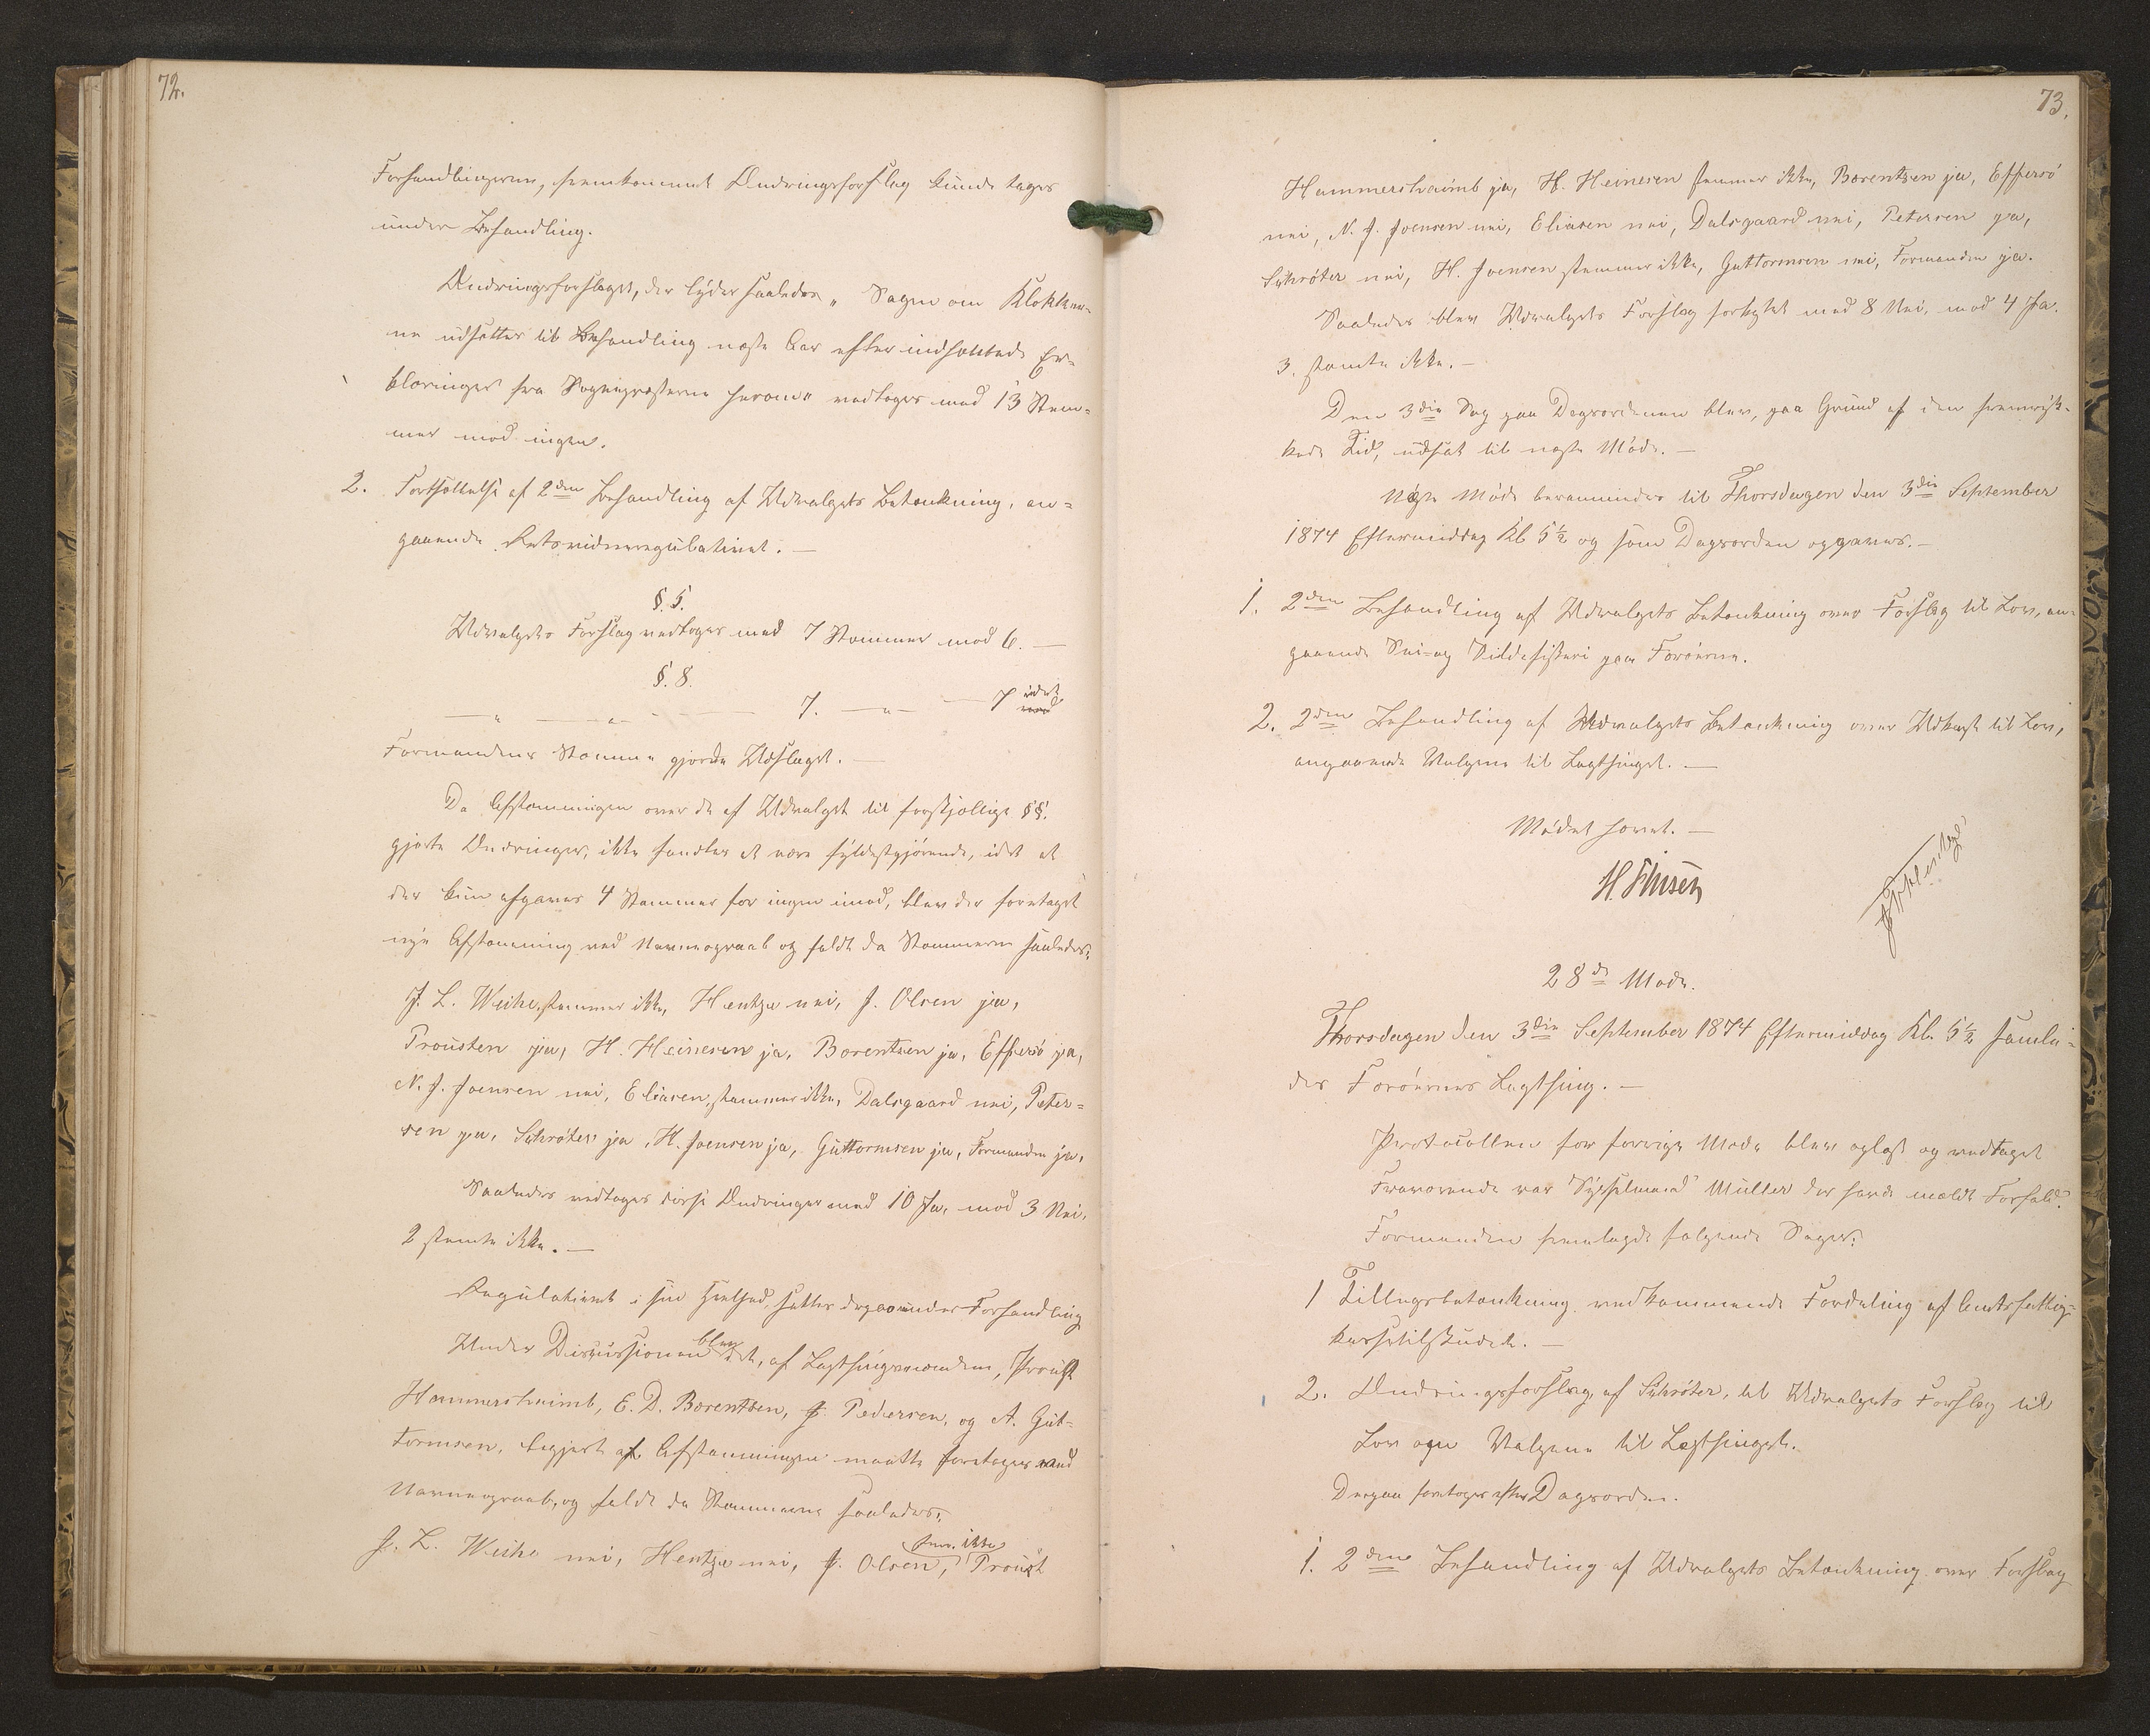 72.
Forhandlingerne, fremkommet Ændringsforslag kunde tages
under Behandling.
Ændringsforslaget, der lyder saaledes „Sagen om Klokker-
ne udsættes til Behandling næste Aar efter indhentede Er-
klæringer fra Sognepræsterne herom" vedtoges med 13 Stem-
mer mod ingen.
2. Fortsættelse af 2den Behandling af Udvalgets Betænkning, an-
gaaende Retsvidneregulativet. —
§. 5.
Udvalgets Forslag vedtoges med 7 Stemmer mod 6. —
§. 8.
— „ — „ — 7. — „ — 7 idet
Formandens Stemme gjorde Udslaget. —
Da Afstemningen over de af Udvalget til forskjellige §§.
gjorte Ændringer, ikke fandtes at være fyldestgjørende, idet at
der kun afgaves 4 Stemmer for ingen imod, blev der foretaget
nye Afstemning ved Navneopraab og faldt da Stemmerne saaledes:
J. L. Weihe, stemmer ikke, Hentze nei, J. Olsen ja,
Prousten ja, H. Heinesen ja, Børentsen ja, Effersö ja,
N. J. Joensen nei, Eliasen, stemmer ikke, Dalsgaard nei, Peter-
sen ja, Schröter ja, H. Joensen ja, Guttormsen ja, Formanden ja,
Saaledes vedtoges disse Ændringer med 10 Ja, mod 3 Nei,
2 stemte ikke. —
Regulativet i sin Heelhed, sattes derpaa under Forhandling
Under Discussionen blev det, af Lagthingsmændene, Proust
Hammershaimb, E. D. Børentsen, J. Pedersen, og A. Gut-
tormsen, begjert at Afstemningen maatte foretages ved
Navneopraab, og faldt da Stemmerne saaledes:
J. L. Weihe nei, Hentze nei, J. Olsen, stem. ikke Proust
73.
Hammershaimb ja, H. Heinesen stemmer ikke, Børentsen ja, Effersö
nei, N. J. Joensen nei, Eliasen nei, Dalsgaard nei, Petersen ja,
Schröter nei, H. Joensen stemmer ikke, Guttormsen nei, Formanden ja.
Saaledes blev Udvalgets Forslag forkastet med 8 Nei, mod 4 Ja.
3. stemte ikke. —
Den 3die Sag paa Dagsordenen blev, paa Grund af den fremryk-
kede Tid, udsat til næste Møde. —
Næste Møde berammedes til Thorsdagen den 3die September
1874 Eftermiddag Kl 5½ og som Dagsorden opgaves. —
1. 2den Behandling af Udvalgets Betænkning over Forslag til Lov, an-
gaaende Sei- og Sildefiskeri paa Færøerne.
2. 2den Behandling af Udvalgets Betænkning over Udkast til Lov,
angaaende Valgene til Lagthinget. —
Mødet hævet. —
H. Finsen
28de Møde.
Thorsdagen den 3die September 1874 Eftermiddag Kl. 5½ samle-
des Færøernes Lagthing. —
Protocollen for forrige Møde blev oplæst og vedtaget
Fraværende var Sysselmand Müller der havde meldt Forfald.
Formanden fremlagde følgende Sager:
1 Tillægsbetænkning vedkommende Fordeling af Amtsfattig-
kassetilskudet. —
2. Ændringsforslag, af Schröter, til Udvalgets Forslag til
Lov om Valgene til Lagthinget.
Derpaa foretoges efter Dagsorden.
1. 2den Behandling af Udvalgets Betænkning over Forslag